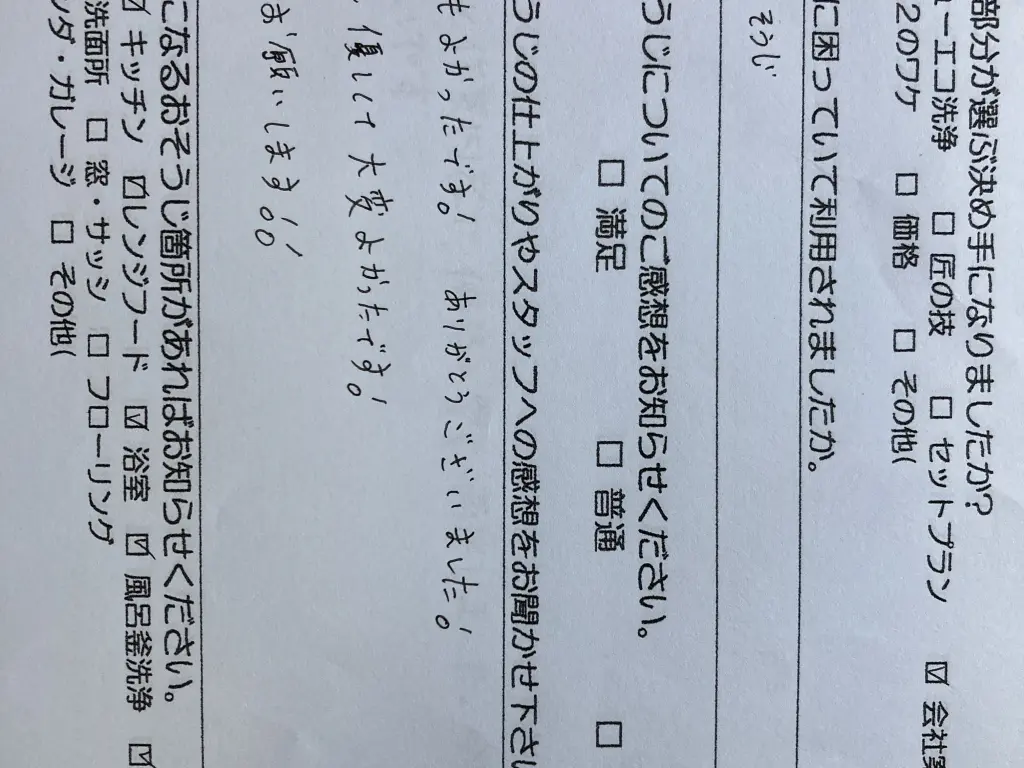 部分が選ぶ決め手になりましたか?
ューエコ洗浄 □ 匠の技 □ セットプラン ☑ 会社実
2のワケ □ 価格 □ その他(
に困っていて利用されましたか。
そうじ
うじについてのご感想をお知らせください。
□ 満足 □ 普通 □
うじの仕上がりやスタッフへの感想をお聞かせ下さい
もよかったです! ありがとうございました!。
優しくて大変よかったです!
お願いします!!
になるおそうじ箇所があればお知らせください。
☑ キッチン ☑ レンジフード ☑ 浴室 ☑ 風呂釜洗浄 ☑
洗面所 □ 窓・サッシ □ フローリング
ンダ・ガレージ □ その他(